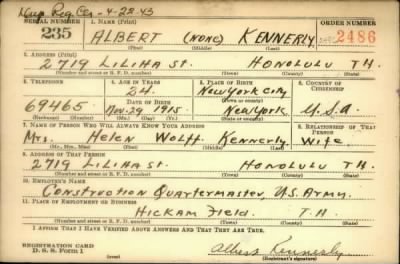 Dup. Reg. Cer. - 4-22-43
SERIAL NUMBER 1. NAME (Print) ORDER NUMBER
235 ALBERT (NONE) KENNERLY 2486
(First) (Middle) (Last)
2. ADDRESS (Print)
2719 LILIHA ST. HONOLULU T.H.
(Number and street or R. F. D. number) (Town) (County) (State)
3. TELEPHONE 4. AGE IN YEARS 5. PLACE OF BIRTH 6. COUNTRY OF CITIZENSHIP
24 New York City
DATE OF BIRTH (Town or county)
69465 Nov. 29 1915 New York U.S.A
(Exchange) (Number) (Mo.) (Day) (Yr.) (State or country)
7. NAME OF PERSON WHO WILL ALWAYS KNOW YOUR ADDRESS 8. RELATIONSHIP OF THAT PERSON
Mrs. Helen Wolff Kennerly Wife
(Mr., Mrs., Miss) (First) (Middle) (Last)
9. ADDRESS OF THAT PERSON
2719 LILIHA ST. HONOLULU T.H.
(Number and street or R. F. D. number) (Town) (County) (State)
10. EMPLOYER'S NAME
Construction Quartermaster, U.S. Army.
11. PLACE OF EMPLOYMENT OR BUSINESS
Hickam Field. T.H
(Number and street or R. F. D. number) (Town) (County) (State)
I AFFIRM THAT I HAVE VERIFIED ABOVE ANSWERS AND THAT THEY ARE TRUE.
REGISTRATION CARD
D. S. S. Form 1 Albert Kennerly
(Registrant's signature)